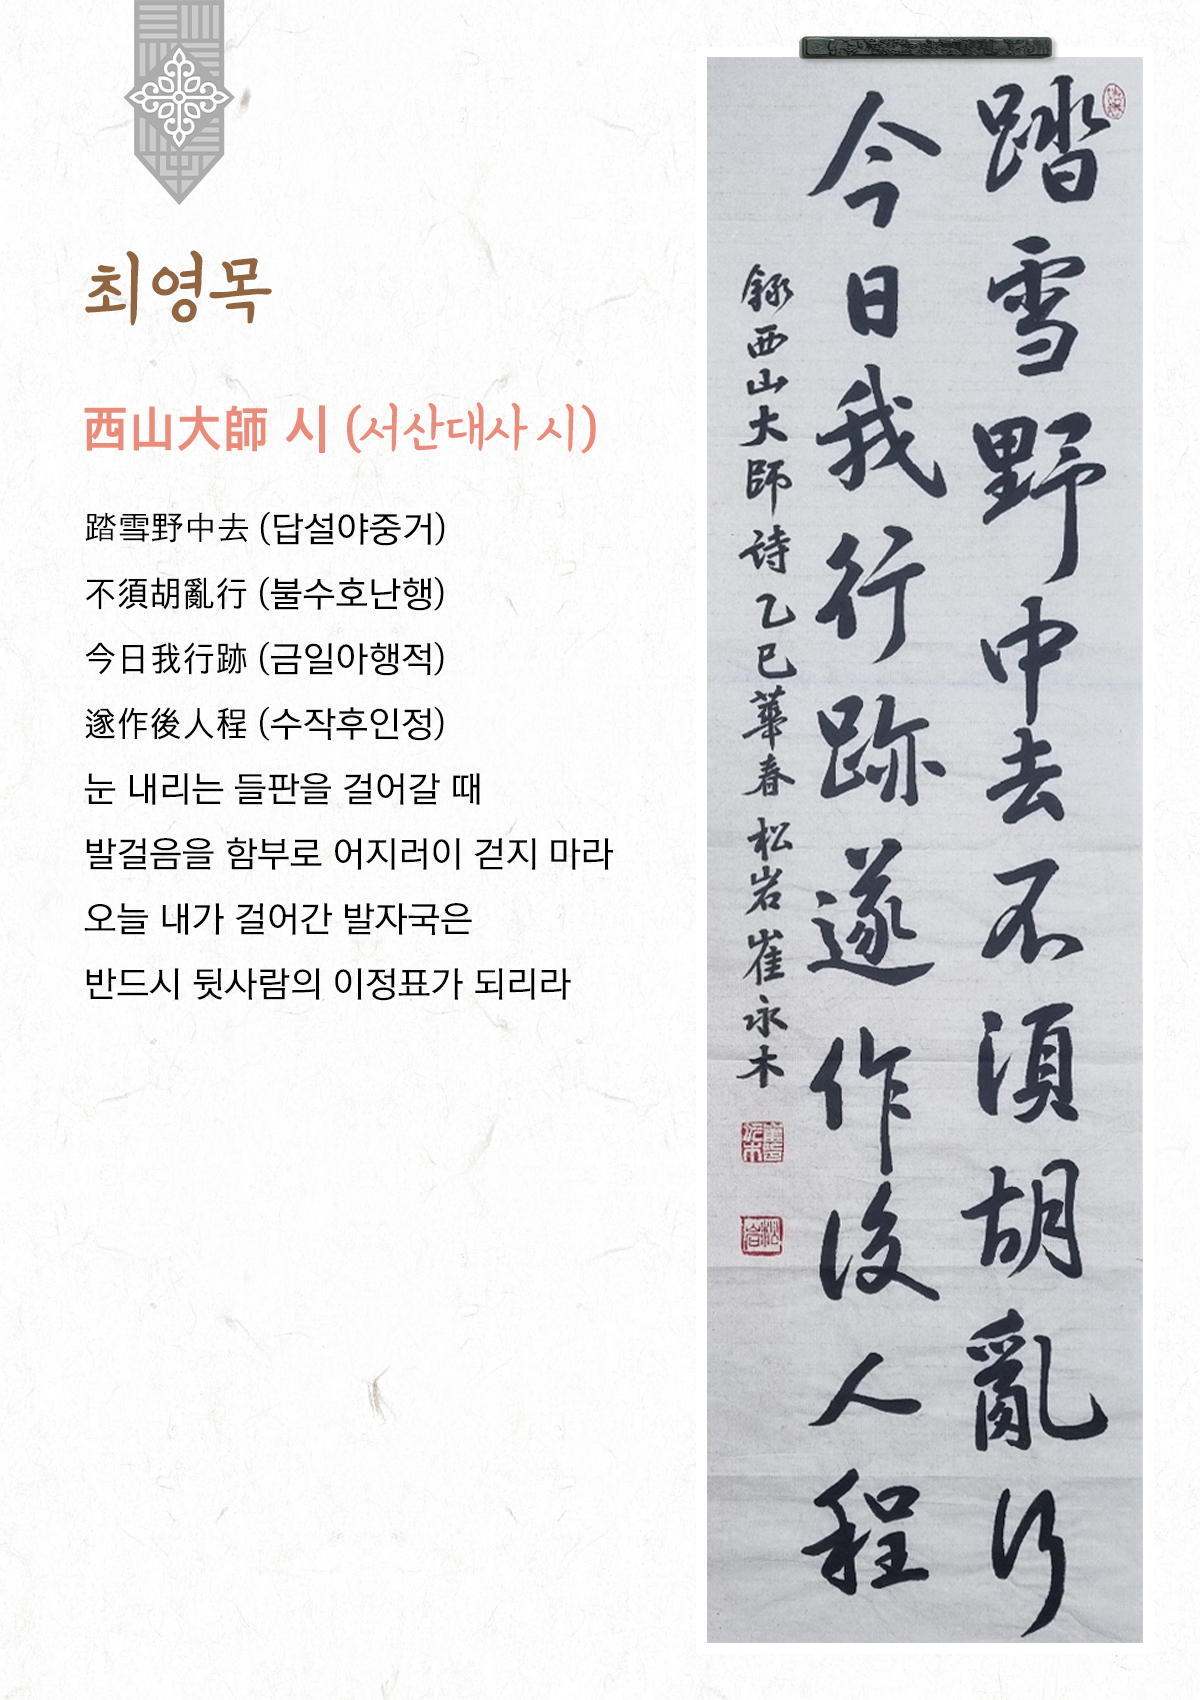 최영목
西山大師 시 (서산대사 시)
踏雪野中去 (답설야중거)
不須胡亂行 (불수호난행)
今日我行跡 (금일아행적)
遂作後人程 (수작후인정)
눈 내리는 들판을 걸어갈 때
발걸음을 함부로 어지러이 걷지 마라
오늘 내가 걸어간 발자국은
반드시 뒷사람의 이정표가 되리라
踏雪野中去不須胡亂行
今日我行跡遂作後人程
錄西山大師詩 乙巳華春 松岩 崔永木